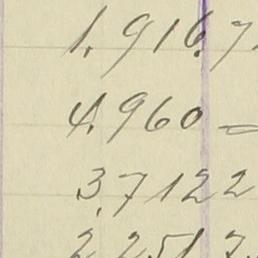 1.916.7.
4.960 -
3.7122
2 251 7.